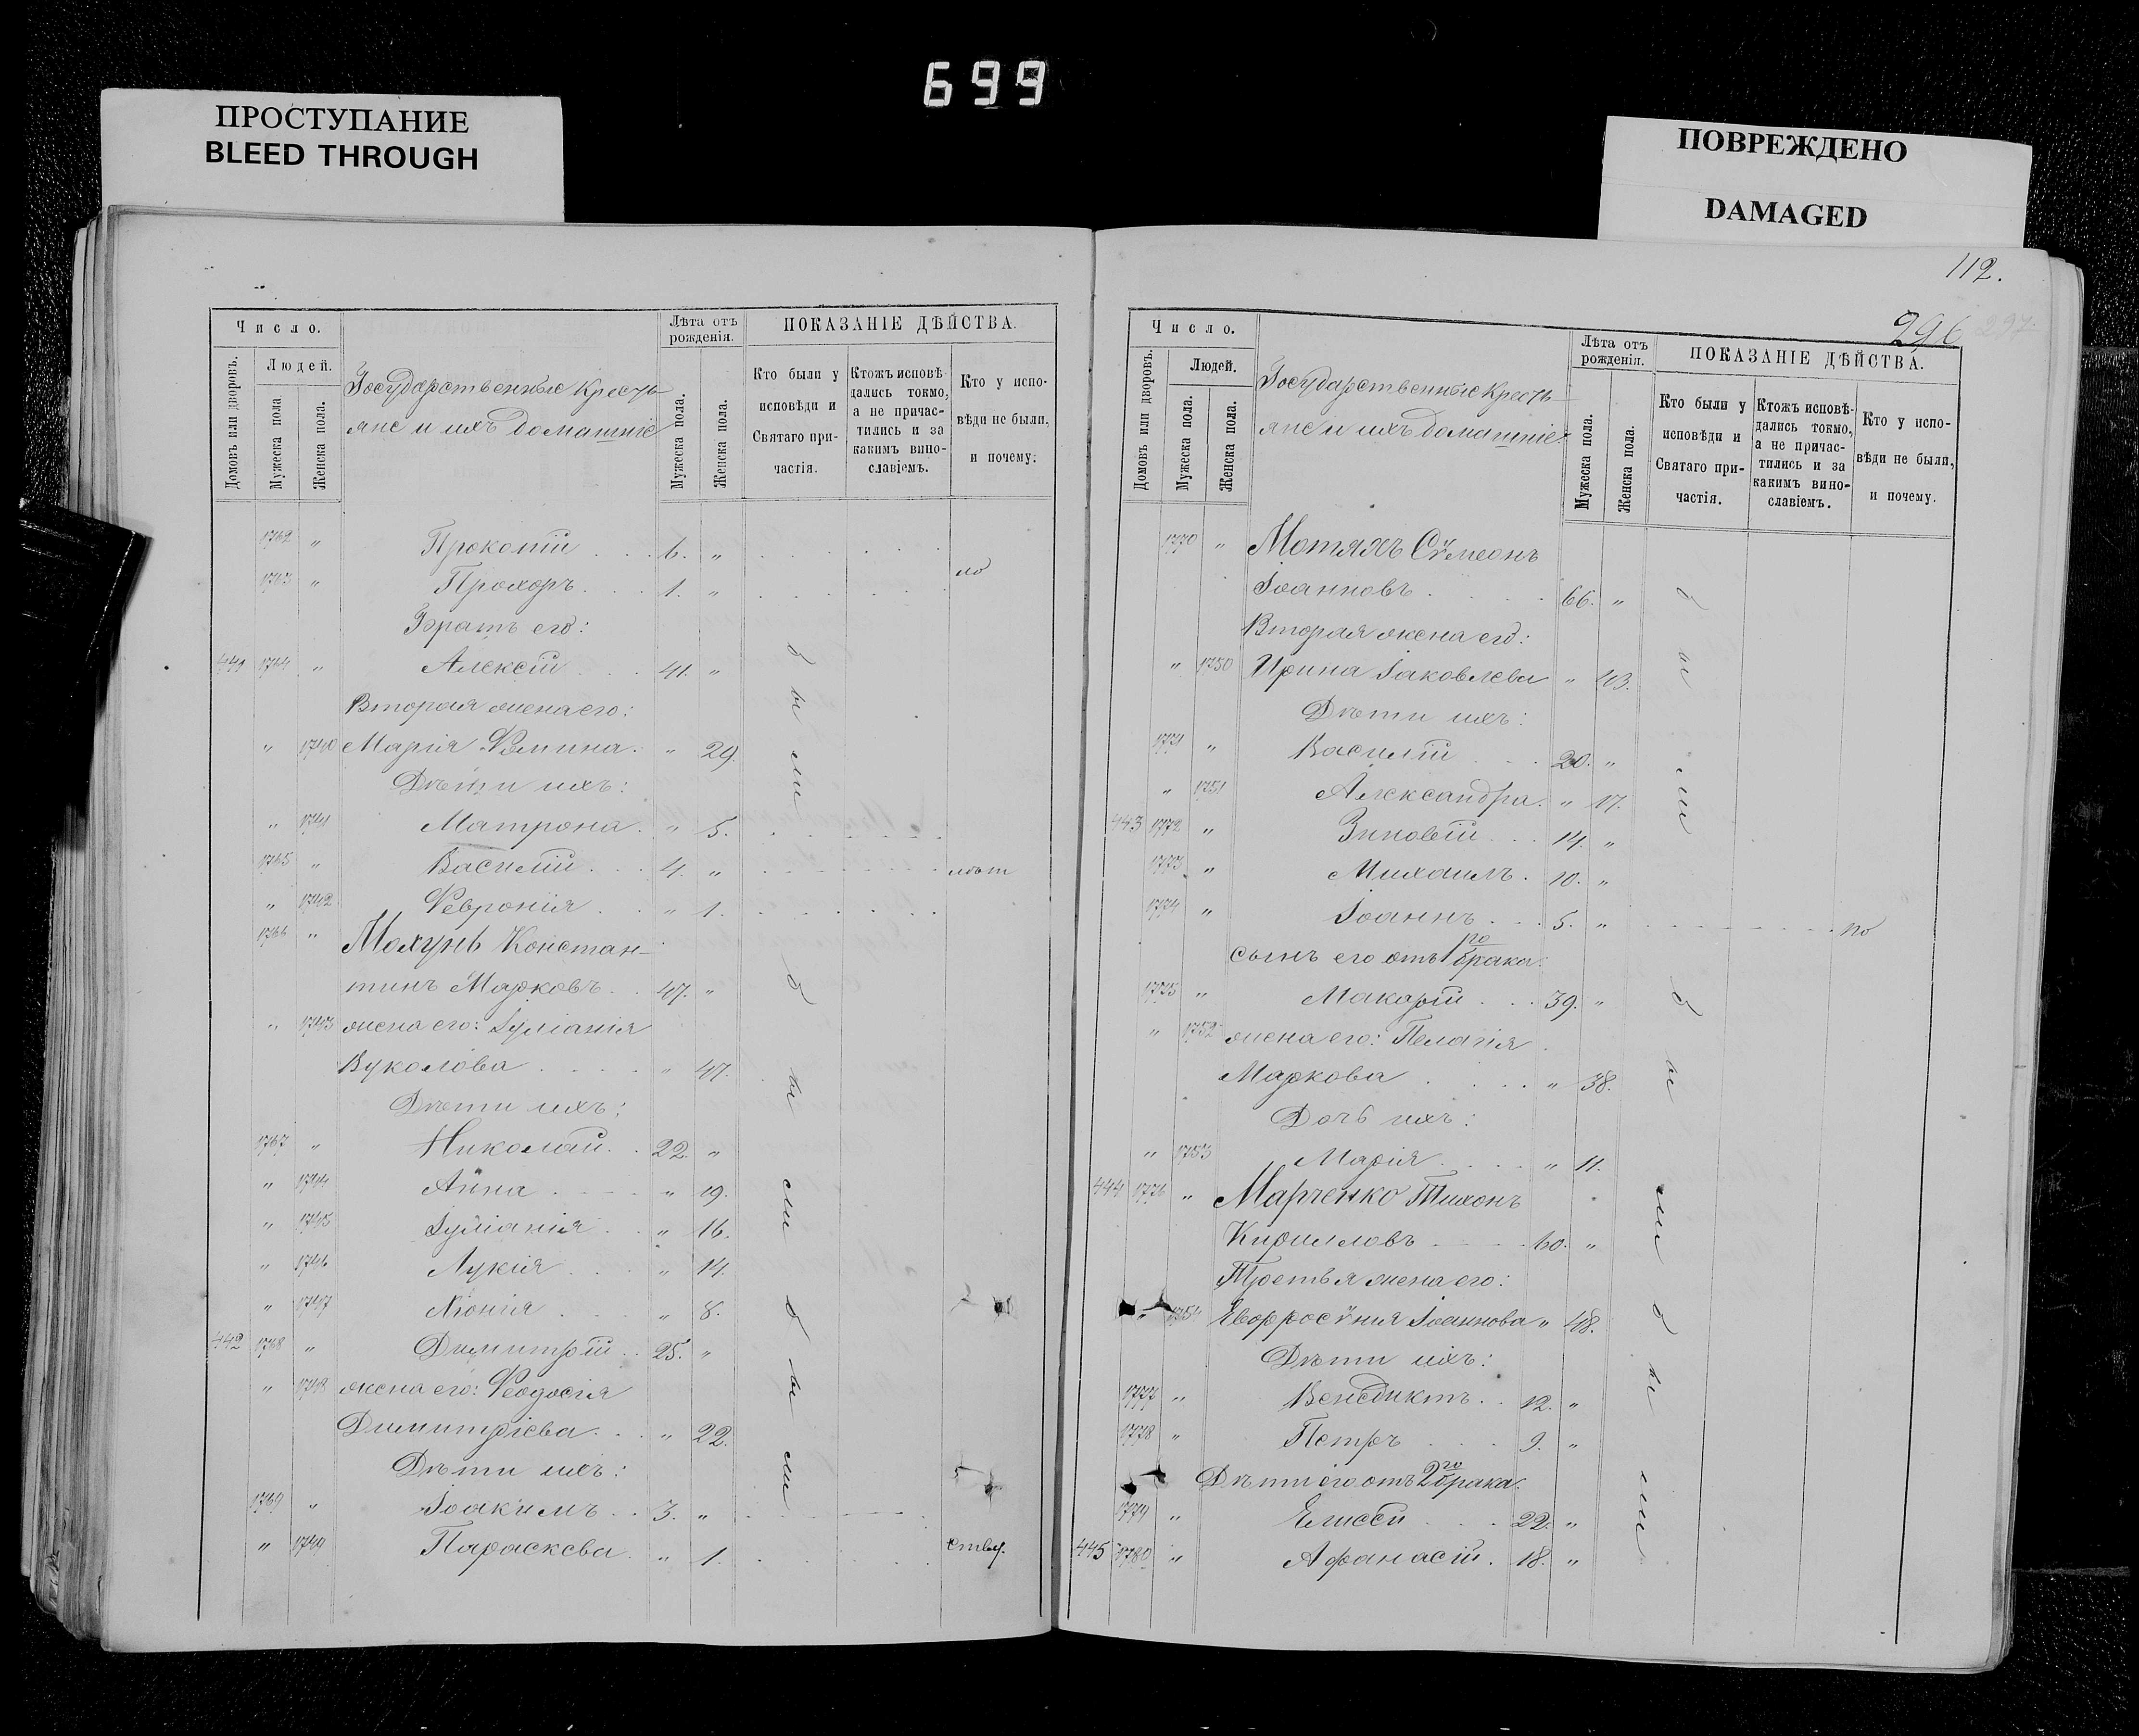 699
ПРОСТУПАНИЕ
BLEED THROUGH
ПОВРЕЖДЕНО
DAMAGED
Число.
Домовъ или дворовъ.
Людей.
Мужеска пола
Женска пола.
Государственные Кресть-
яне и ихъ домашніе
Лѣта отъ рожденія.
Мужеска пола.
Женска пола.
ПОКАЗАНІЕ ДѢЙСТВА.
Кто были у исповѣди и Святаго при-частія.
Ктожъ исповѣ-дались токмо, а не причас-тились и за какимъ вино-славіемъ.
Кто у испо-вѣди не были, и почему.
1762 „ Прокопій . . . 6. „
1763 „ Прохоръ . . . 1. „ по
Братъ его:
441 1764 „ Алексій . . . 41. „
Вторая жена его:
„ 1740 Марія Ѳомина. „ 29.
Дѣти ихъ:
„ 1741 Матрона. „ 5.
1765 „ Василій . . . 4. „
„ 1742 Ѳевронія . . „ 1.
1766 „ Мохунь Констан-
тинъ Марковъ . . 47. „
„ 1743 жена его: Іуліанія
Вуколова . . . . „ 47.
Дѣти ихъ:
1767 „ Николай. . 22. „
„ 1744 Анна . . . „ 19.
„ 1745 Іуліанія . . „ 16.
„ 1746 Лукія . . . „ 14.
„ 1747 Хіонія . . . „ 8.
442 1768 „ Димитрій . . 25. „
„ 1748 жена его: Ѳеодосія
Димитріева . . . „ 22.
Дѣти ихъ:
1769 „ Іоакимъ . . 3. „
„ 1749 Параскева. „ 1.
были
были
были
112.
296
297
Число.
Домовъ или дворовъ.
Людей.
Мужеска пола.
Женска пола.
Государственные Кресть-
яне и ихъ домашніе:
Лѣта отъ рожденія.
Мужеска пола.
Женска пола.
ПОКАЗАНІЕ ДѢЙСТВА.
Кто были у исповѣди и Святаго при-частія.
Ктожъ исповѣ-дались токмо, а не причас-тились и за какимъ вино-славіемъ.
Кто у испо-вѣди не были, и почему.
1770 „ Мотяхъ Сѵмеонъ
Іоанновъ . . . . 66. „
Вторая жена его:
„ 1750 Ирина Іаковлева „ 43.
Дѣти ихъ:
1771 „ Василій . . . 20. „
„ 1751 Александра. „ 17.
443 1772 „ Зиновій . . . 14. „
1773 „ Михаилъ . 10. „
1774 „ Іоаннъ . . . 5. „ по
сынъ его отъ 1го брака:
1775 „ Макарій . . . 39. „
„ 1752 жена его: Пелагія
Маркова . . . . „ 38.
Дочь ихъ:
„ 1753 Марія . . . . „ 11.
444 1776 „ Марченко Тихонъ
Кирилловъ . . . . 60. „
Третья жена его:
„ 1754 Евфросѵнія Іоаннова „ 48.
Дѣти ихъ:
1777 „ Венедиктъ . . 12. „
1778 „ Петръ . . . 9. „
Дѣти его отъ 2го брака.
1779 „ Елисей . . . 22. „
445 1780 „ Афанасій . 18. „
были
были
были